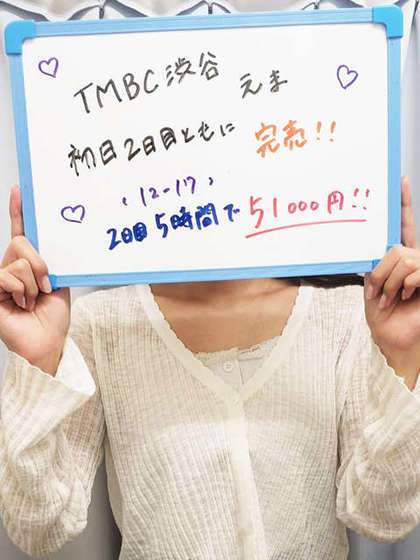 TMBC渋谷 えま
初日2日目ともに 完売!!
(12-17)
2日目 5時間で 51000円!!